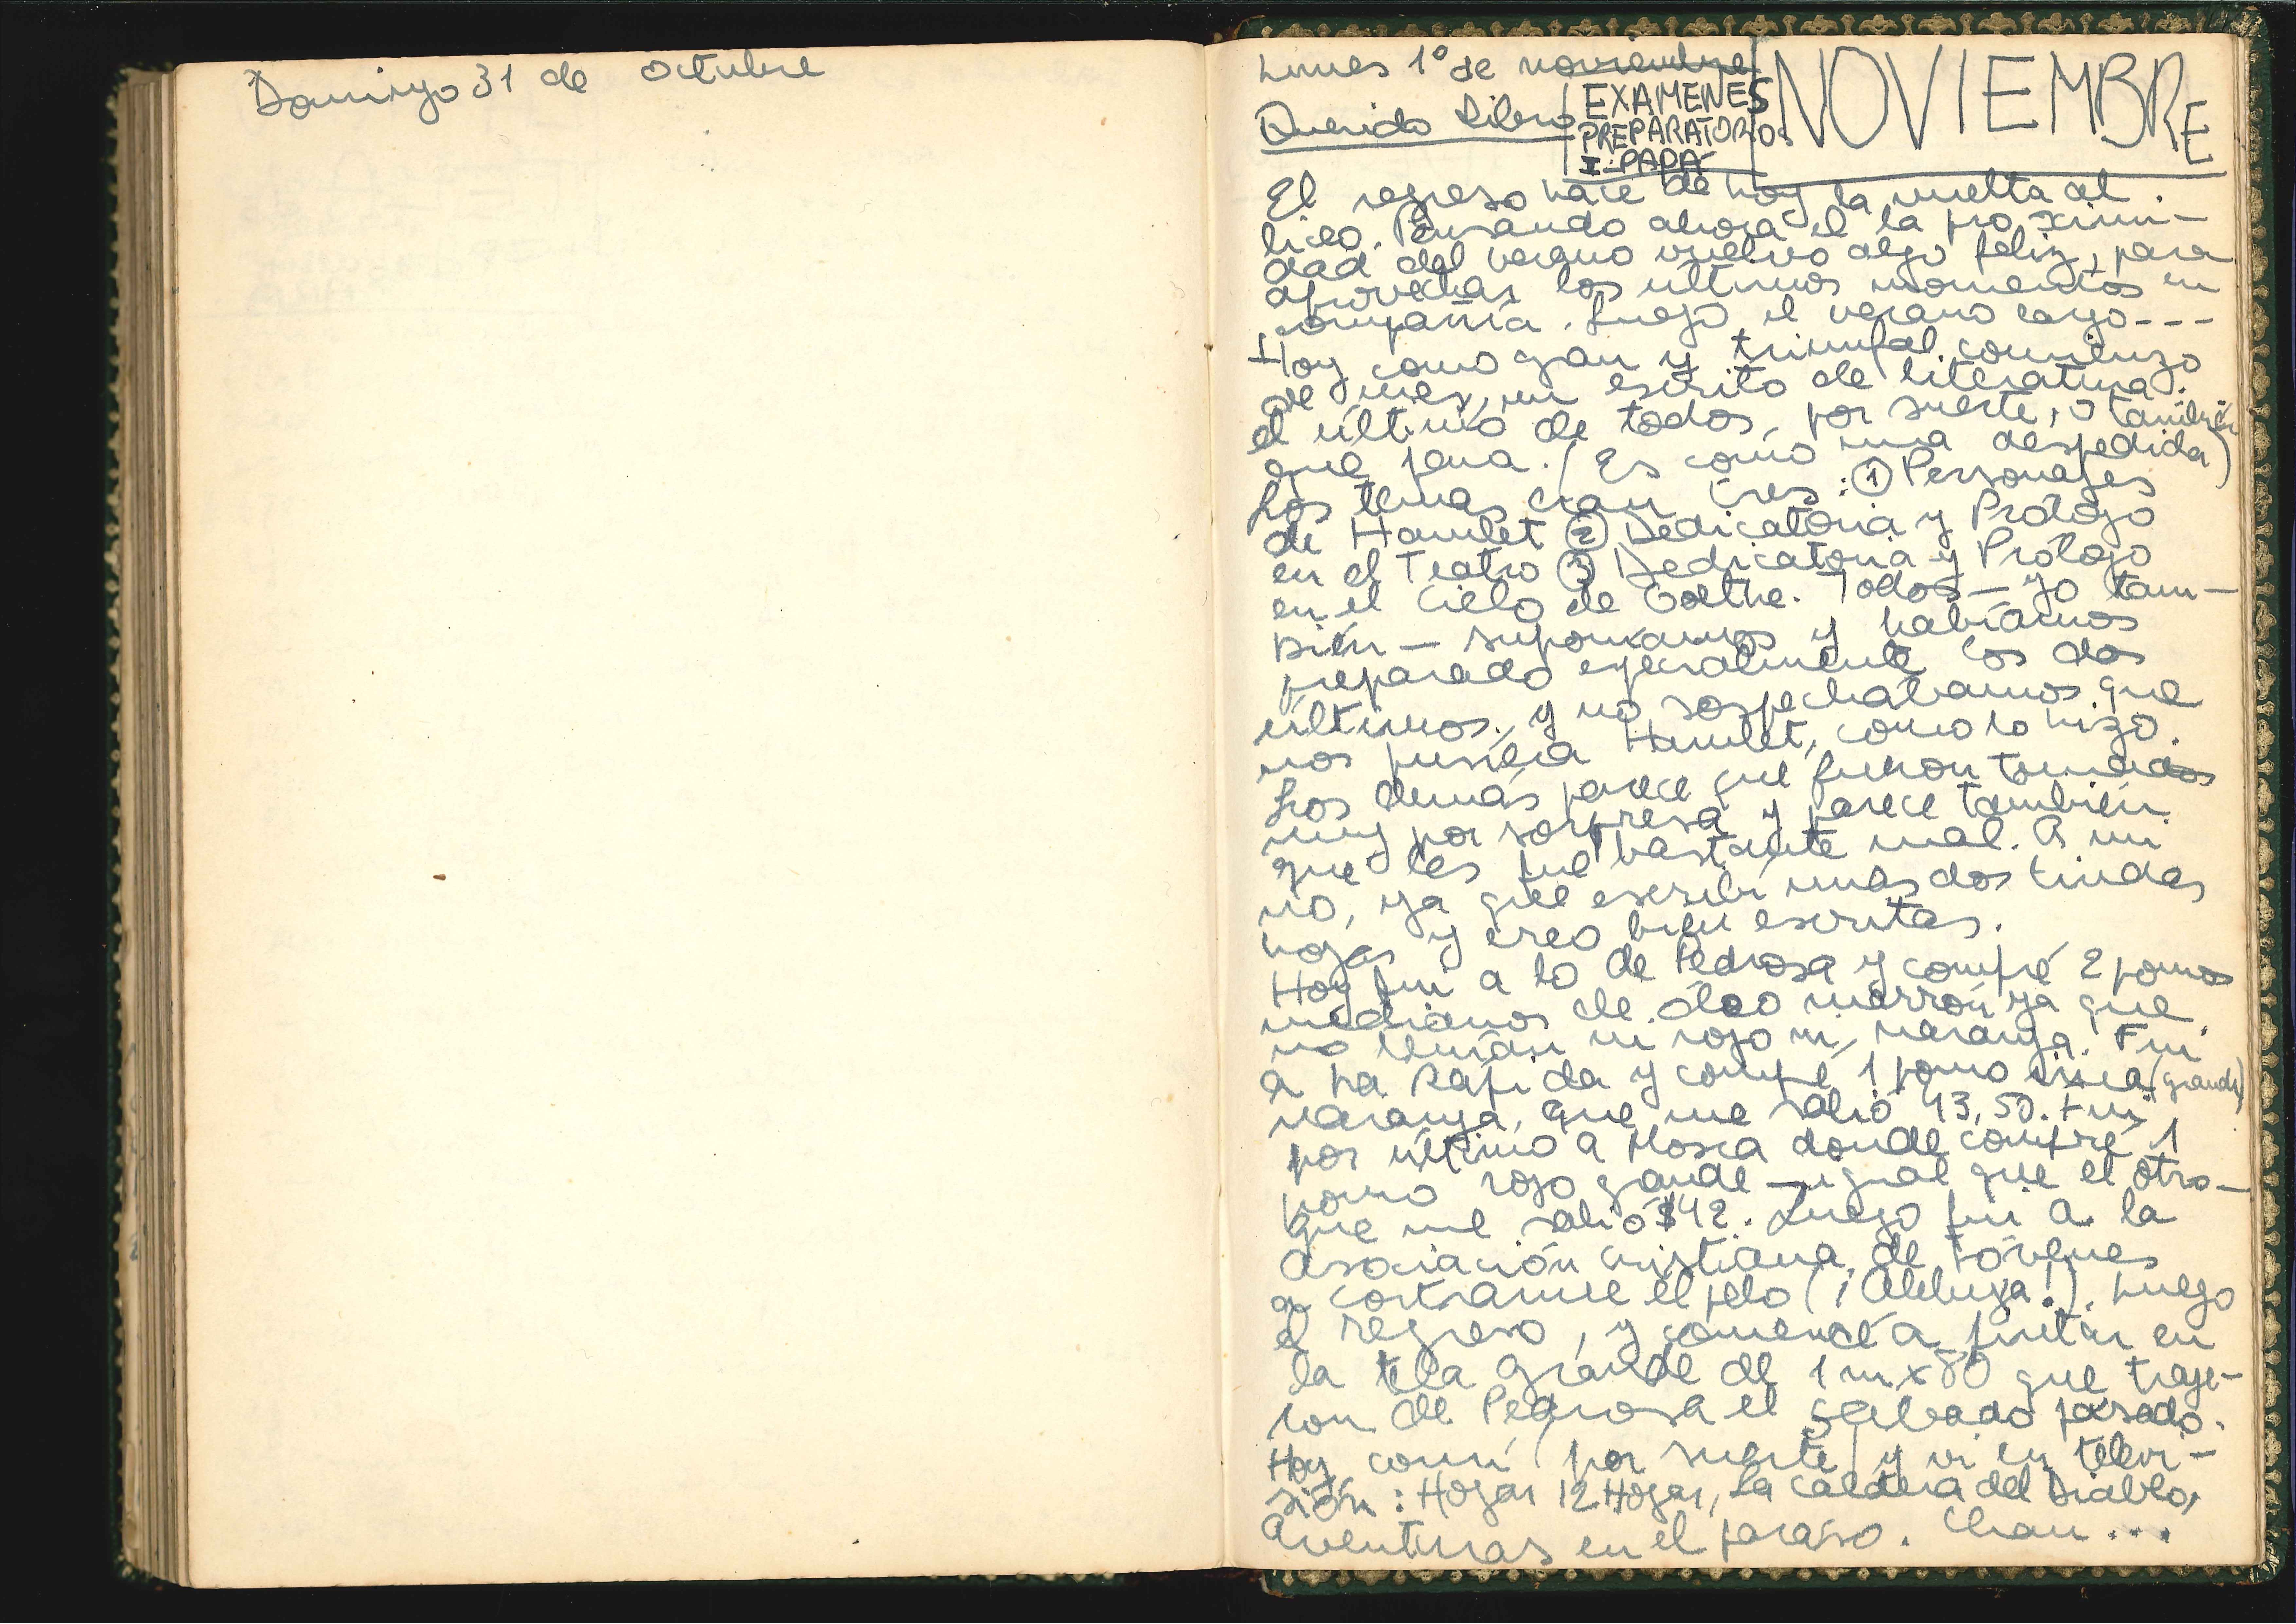 Domingo 31 de octubre
Lunes 1º de noviembre
Querido Libro
EXAMENES
PREPARATORIOS
I: PAPA
NOVIEMBRE
El regreso hace de hoy la vuelta al
liceo. Pensando ahora el la proximi-
dad del verano vuelvo algo feliz, para
aprovechar los últimos momentos en
compañía. Luego el verano largo---
Hoy como gran y triunfal comienzo
de mes, un escrito de literatura.
el último de todos, por suerte, o también
que pena. (Es como una despedida)
Los temas eran tres: ① Personajes
de Hamlet ② Dedicatoria y Prólogo
en el Teatro ③ Dedicatoria y Prólogo
en el Cielo de Goethe. Todos — yo tam-
bién — suponíamos y habíamos
preparado especialmente los dos
últimos, y no sospechábamos que
nos pusiera Hamlet, como lo hizo.
Los demás parece que fueron tomados
muy por sorpresa y parece también
que les fue bastante mal. A mi
no, ya que escribí unas dos lindas
hojas y creo bien escritas.
Hoy fui a lo de Pedrosa y compré 2 pomos
medianos de óleo marrón ya que
no tenían ni rojo ni naranja. Fui
a La Rápida y compré 1 pomo (grande)
naranja, que me salió 43,50. Fui
por último a Mosca donde compré 1
pomo rojo grande — igual que el otro —
que me salió $42. Luego fui a la
Asociación Cristiana de Jóvenes
a cortarme el pelo (¡Aleluya!). Luego
el regreso, y comencé a pintar en
la tela grande de 1 m x 80 que traje-
ron de Pedrosa el sábado pasado.
Hoy comí (por suerte) y vi en televi-
sión: Hogar 12 Hogar, La caldera del Diablo,
Aventuras en el paraíso. Chau...